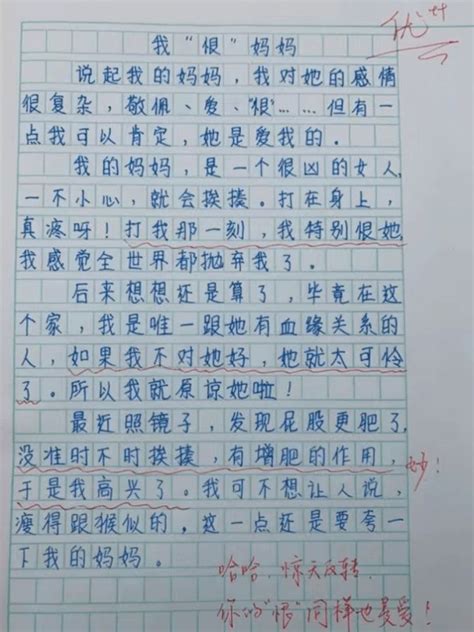 优++
我“恨”妈妈
说起我的妈妈，我对她的感情
很复杂，敬佩、爱、“恨”……但有一
点我可以肯定，她是爱我的．
我的妈妈，是一个很凶的女人，
一不小心，就会挨揍。打在身上，
真疼呀！打我那一刻，我特别恨她
我感觉全世界都抛弃我了。
后来想想还是算了，毕竟在这
个家，我是唯一跟她有血缘关系的
人，如果我不对她好，她就太可怜
了。所以我就原谅她啦！
最近照镜子，发现屁股更肥了，
没准时不时挨揍，有增肥的作用，
妙！
于是我高兴了。我可不想让人说，
瘦得跟猴似的，这一点还是要夸一
下我的妈妈。
哈哈，惊天反转，
你的“恨”同样也是爱！